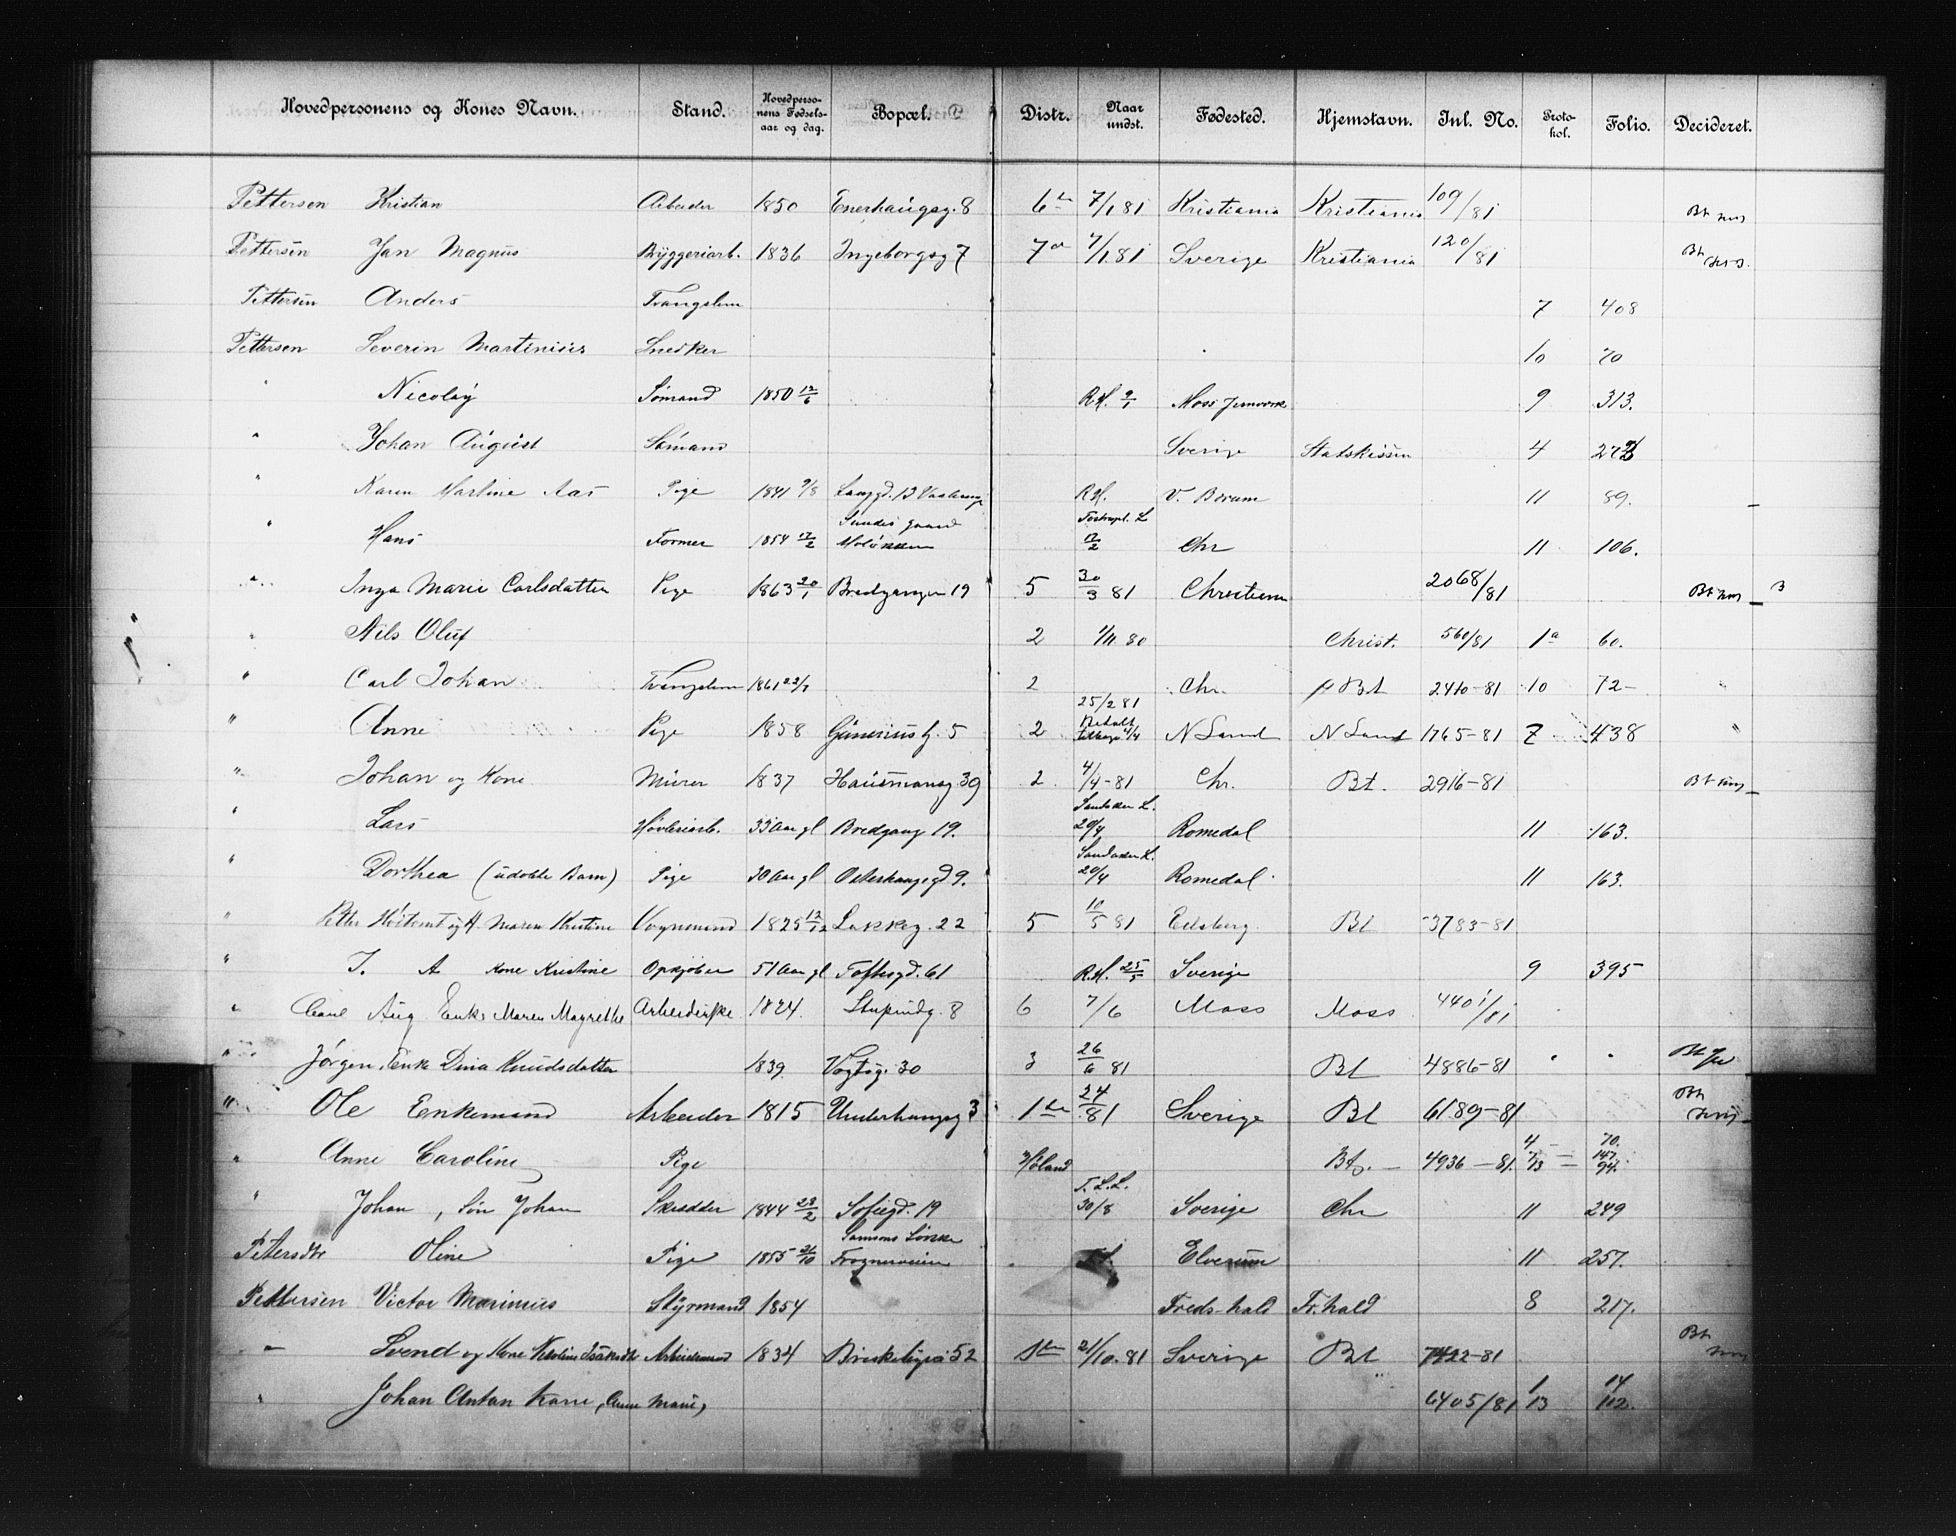 Hovedpersonens og Kones Navn. Stand. Hovedpersonens Fødselsaar og dag. Bopæl. Distr. Naar undst. Fødested. Hjemstavn. Inl. No. Protokol. Folio. Decideret.
Pettersen Kristian Arbeider 1850 Enerhaugsg. 8 6te 7/1 81 Kristiania Kristiania 109/81 Bt
Pettersen Jan Magnus Bryggeriarb. 1836 Ingeborgsg 7 7de 7/1 81 Sverige Kristiania 120/81 Bt
Pettersen Anders Tvangslem 7 408
Pettersen Severin Martinius Snedker 10 70
" Nicolay Sømand 1850 12/6 R.H. 9/1 Moss Jernværk 9 313.
" Johan August Sømand Sverige Statskassen 4 272
" Karen Martine Aas Pige 1841 9/8 Langgd. 13 R.H. V. Bærum 11 89.
" Hans Former 1854 17/2 Sundes gaard Møløkken L 17/2 Chr 11 106.
" Inga Marie Carlsdatter Pige 1863 20/1 Bredgangen 19 5 30/3 81 Christiania 2068/81 Bt
" Nils Oluf 2 1/11 80 Christ. 560/81 1a 60.
" Carl Johan Tvangslem 1861 22/7 2 Chr. Bt 2410-81 10 72 -
" Anne Pige 1858 Gunerius g. 5 2 25/2 81 Betalt N Land N Land 1765-81 7 438 "
" Johan og Kone Murer 1837 Hausmansg. 39 2. 4/4-81 Chr. Bt. 2916-81 Bt
" Lars Høvleriarb. 33 Aar gl Bredgang 19. Sandaker L. 20/4 Romedal 11 163.
" Dorthea (udøbte Barn) Pige 30 Aar gl Østerhausgd 9. Sandaker L. 20/4 Romedal 11 163.
" Petter Maren Kristine Vognmand 1825 12/12 Lakkeg. 22 5 10/5 81 Edsberg Bt 3783-81
" J. A Kone Kristine Opkjøber 51 Aar gl Toftesgd. 61 R.H. 25/5 Sverige 9 395
" Carl Aug. Enke Maren Magrethe Arbeiderske 1824. Stupindg. 8 6 7/6 Moss Moss 4401/81
" Jørgen, Enke Dina Knudsdatter 1839. Vogtsg. 30 3 26/6 81 Bt 4886-81 Bt
" Ole Enkemand Arbeider 1815 Underhaugsg 3 1ste 24/81 Sverige Bt 6189-81 Bt
" Anne Caroline Pige Høland Bt. - 4936 - 81. 4 7/13 70. 147. 94.
" Johan, Søn Johan Skrædder 1844 23/2 Sofiegd. 19 T. L. L. 30/8 Sverige Chr 11 249
Petersdtr Oline Pige 1855 21/10 Samsons Løkke Frognerveien Elverum 11 257.
Pettersen Victor Marinius Styrmand 1854 Freds-hald Fr.hald 8 217.
" Svend og Kone Arbeidsmand 1834 Briskebygd 52 1ste 21/10. 81 Sverige Bt 7422-81 Bt
" Johan Antan Kone, (Anne Marie) 6405/81 1/13 14 112.